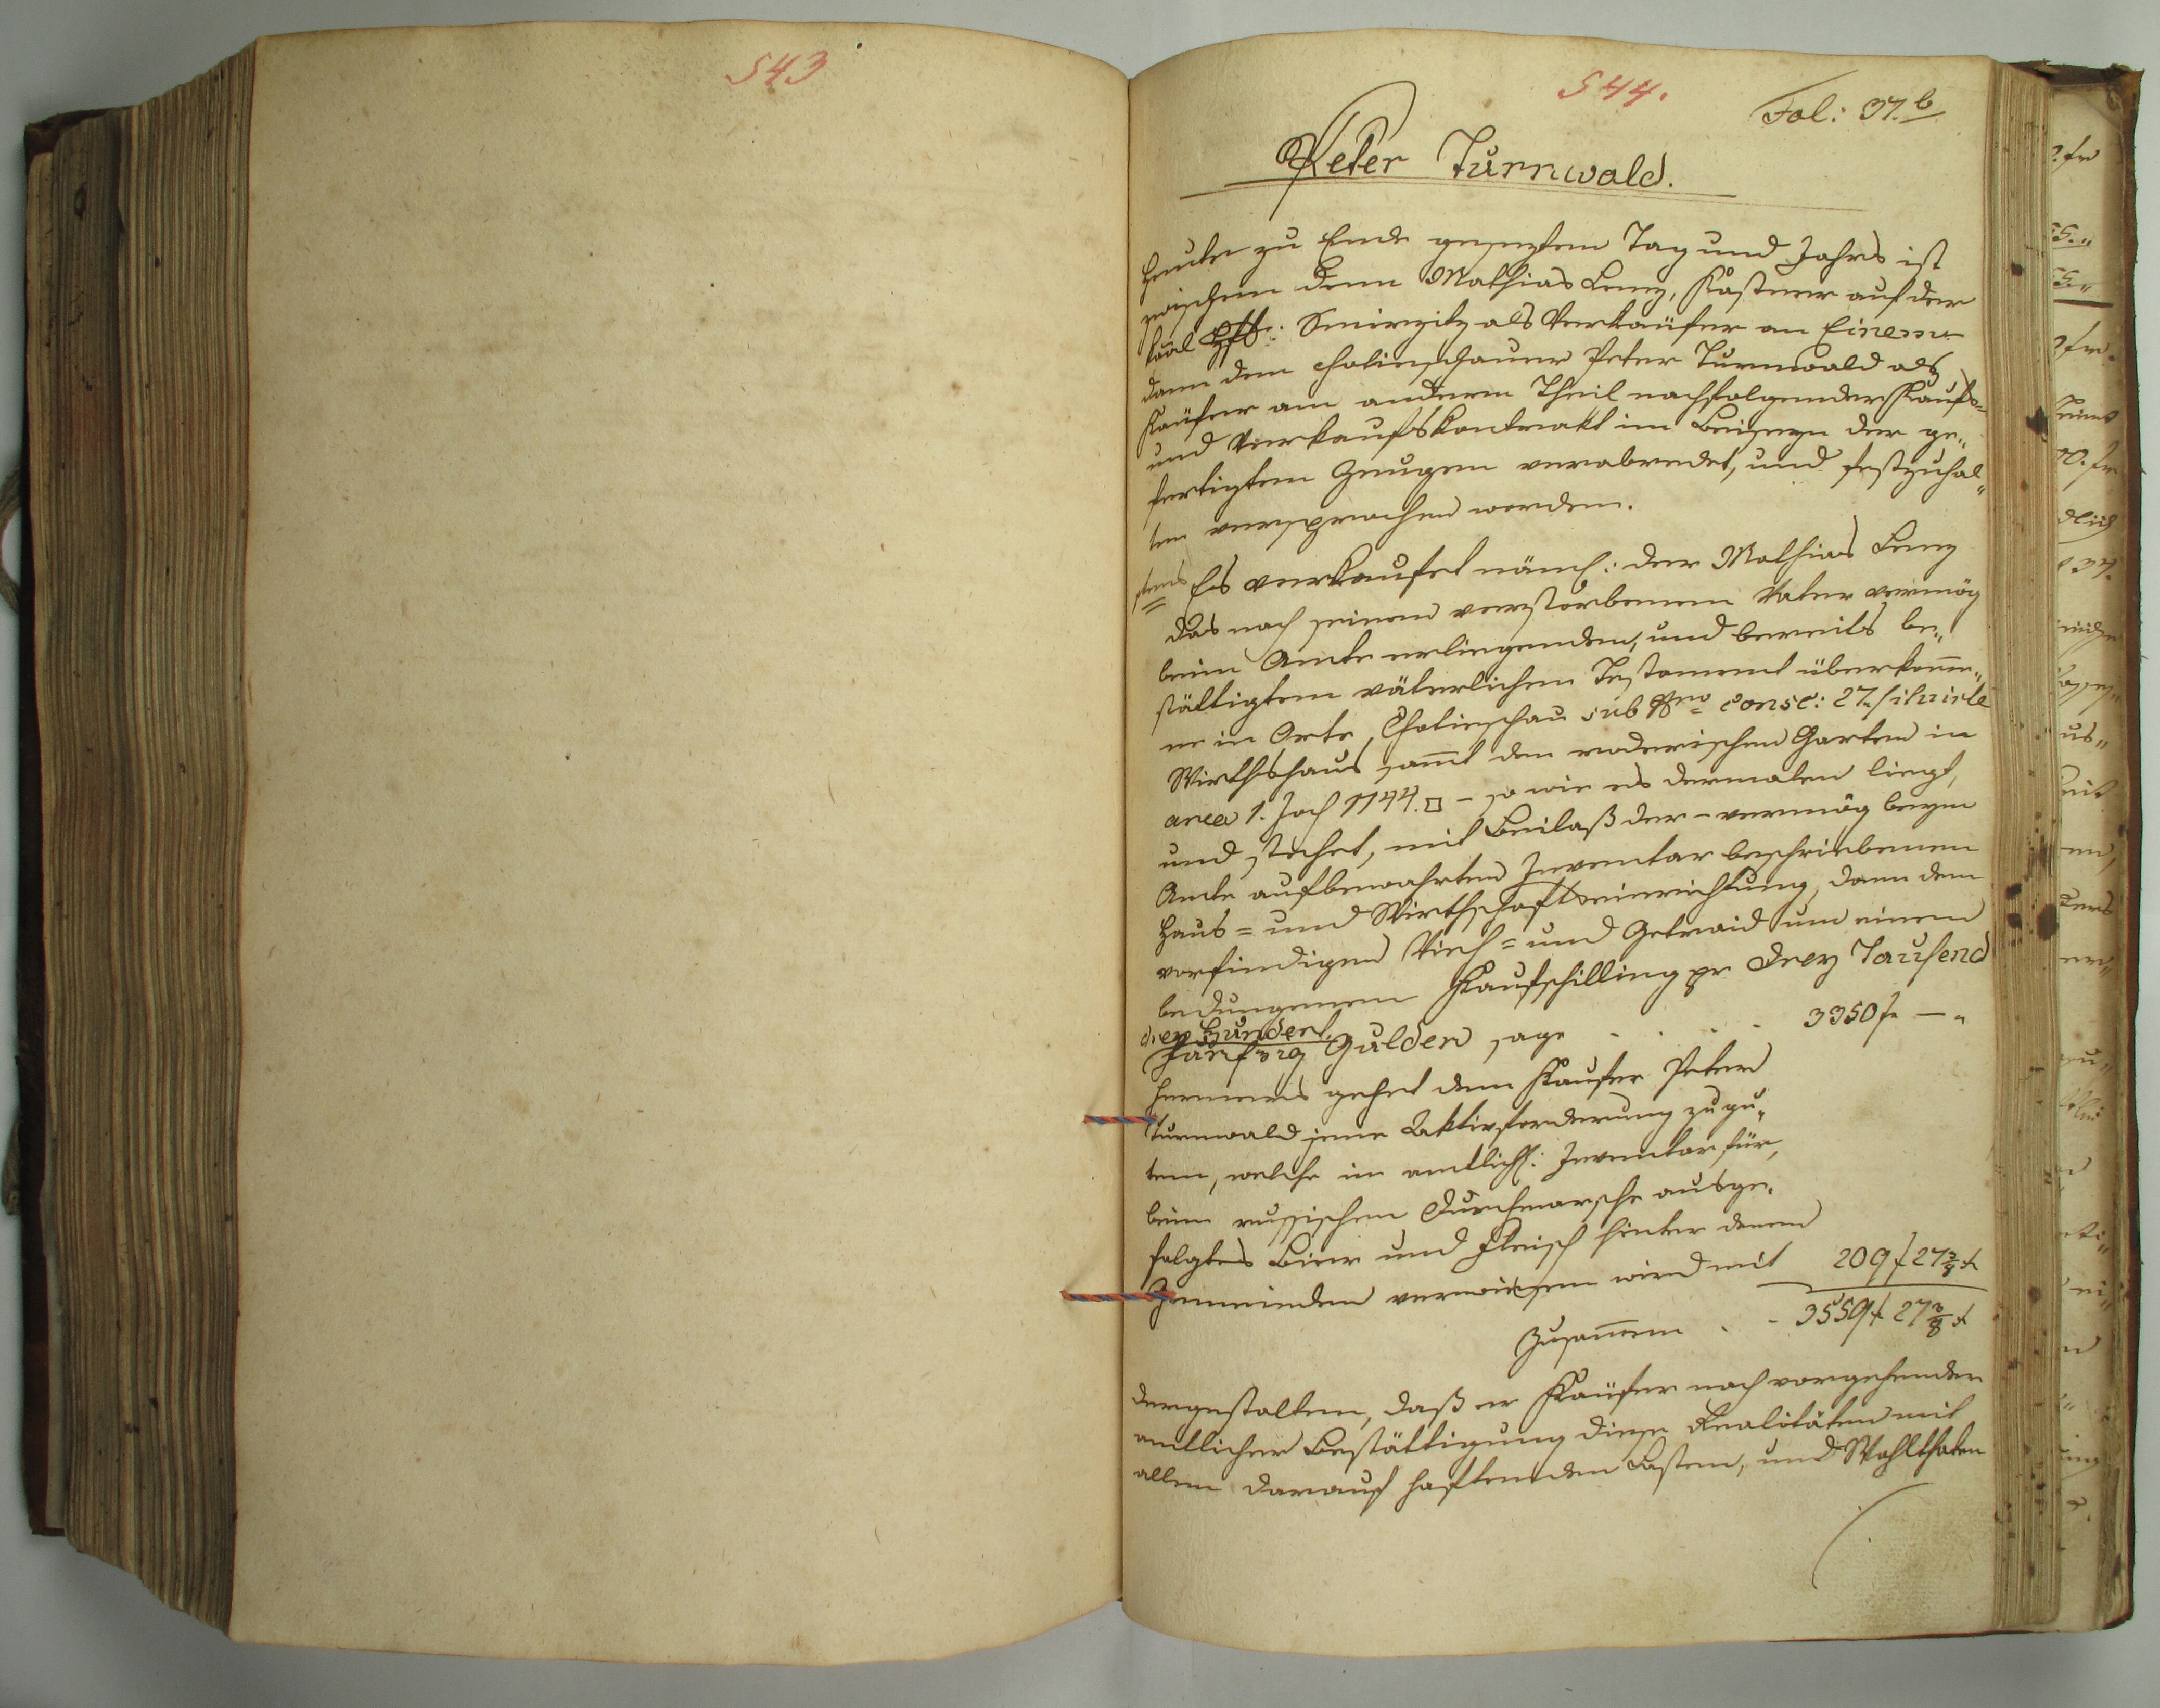 543
544.
Fol: 37.b
Peter Turnwald.
Heute zu Ende gesezten Tag und Jahrs ist
zwischen dem Mathias Lenz, Kastner auf der
kaal Hft: Smirzitz als Verkäufer an Einem
dann dem Chotieschauer Peter Turnwald als
Käufer am anderen Theil nachfolgender Kaufs-
und Verkaufskontrakt im Beiseyn der ge-
fertigten Zeugen verabredet, und festzuhal-
ten versprochen worden.
stens Es verkaufet näml: der Mathias Lenz
das nach seinem verstorbenen Vater vermög
beim Amte erliegenden, und bereits be-
stättigten väterlichen Testament überkomme-
ne in Orte Chotieschau sub Nro consc: 27. situirte
Wirthshaus samt den raderischen Garten in
area 1. Joch 1144.□ - so wie es dermalen liegt,
und stehet, mit Beilaß der - vermög beym
Amte aufbewahrten Inventar beschriebenen
Haus- und Wirthschaftseinrichtung, dann dem
vorfindigen Vieh- und Getraid um einem
bedungenem Kaufschilling pr Drey Tausend
drey Hundert
Fünfzig Gulden sage . . . . 3350 f — "
Ferners gehet dem Kaufer Peter
Turnwald jene Aktivforderung zu gu-
ten, welche im amtlich: Inventar für,
beim russischen Durchmarsche ausge-
folgtes Bier und Fleisch hinter denen
Gemeinden verwiesen wird mit 209 f 27 3/8 x
Zusammen . . 3559 f 27 3/8 x
dergestalten, daß er Käufer nach vorgehender
amtlicher Bestättigung diese Realitäten mit
allen darauf haftenden Lasten, und Wohlthaten